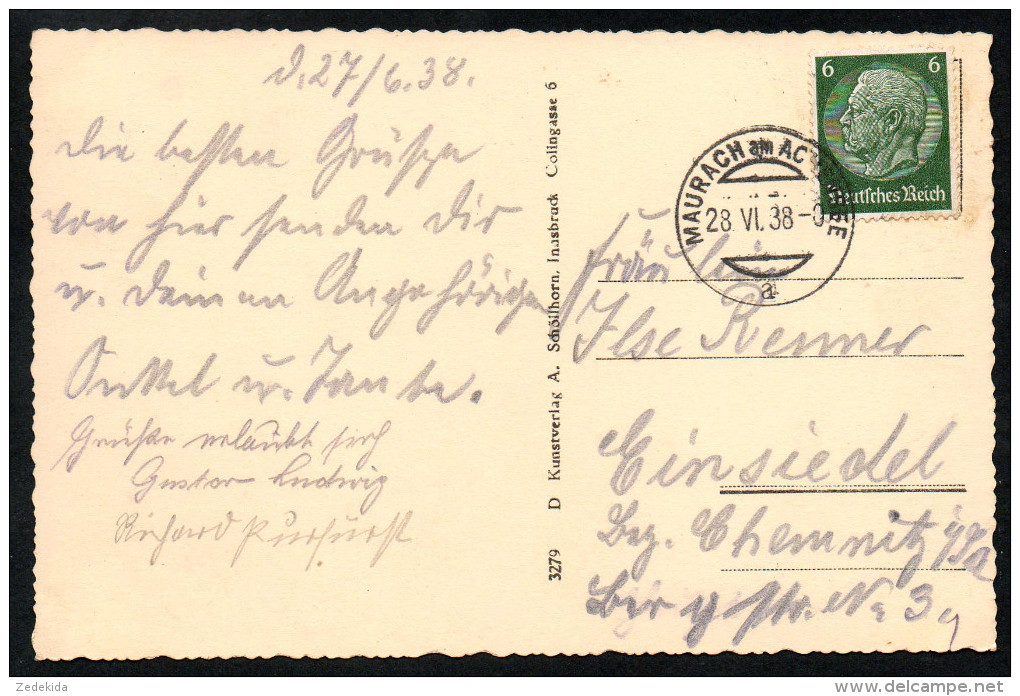 d. 27/6.38.
die besten Grüße
von hier senden Dir
u. deinen Angehörigen
Onkel u. Tante.
Grüße erlaubt sich
Gustav Ludwig
Richard Purfürst
3279 D Kunstverlag A. Schöllhorn, Innsbruck Colingasse 6
6 6
Deutsches Reich
MAURACH am ACHENSEE
28. VI. 38 -9
a
Fräulein
Ilse Renner
Einsiedel
Bez. Chemnitz i/Sa
Bergstr. No 39
Zedekida
delcampe.net